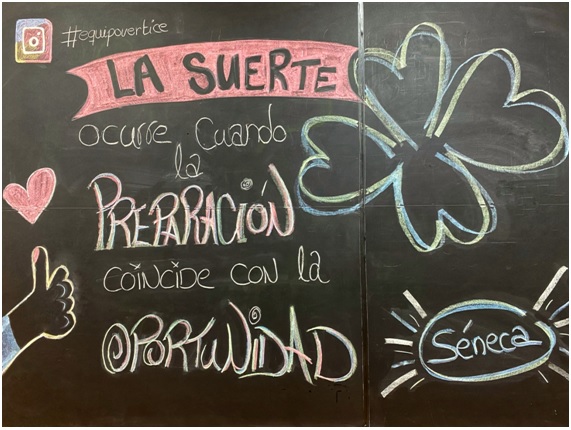 #equipovertice
LA SUERTE
ocurre cuando
la
PREPARACIÓN
COINCIDE CON la
OPORTUNIDAD
Séneca